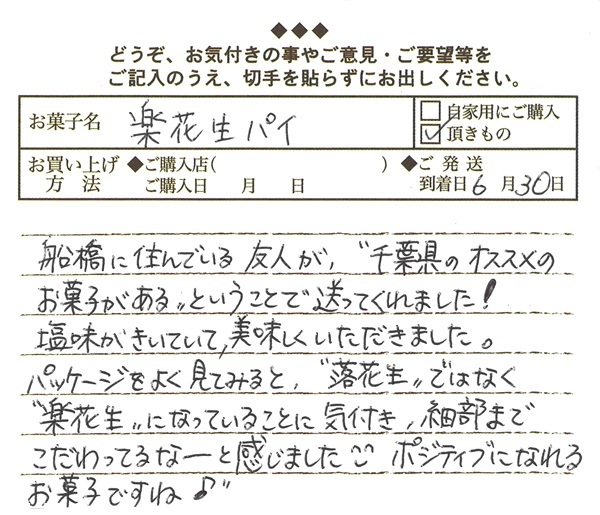 ◆◆◆
どうぞ、お気付きの事やご意見・ご要望等を
ご記入のうえ、切手を貼らずにお出しください。
お菓子名 楽花生パイ □自家用にご購入
☑頂きもの
お買い上げ方法 ◆ご購入店( ) ◆ご発送
ご購入日 月 日 到着日6月30日
船橋に住んでいる友人が、"千葉県のオススメの
お菓子がある"ということで送ってくれました!
塩味がきいていて、美味しくいただきました。
パッケージをよく見てみると、"落花生"ではなく
"楽花生"になっていることに気付き、細部まで
こだわってるなーと感じました ポジティブになれる
お菓子ですね♪"